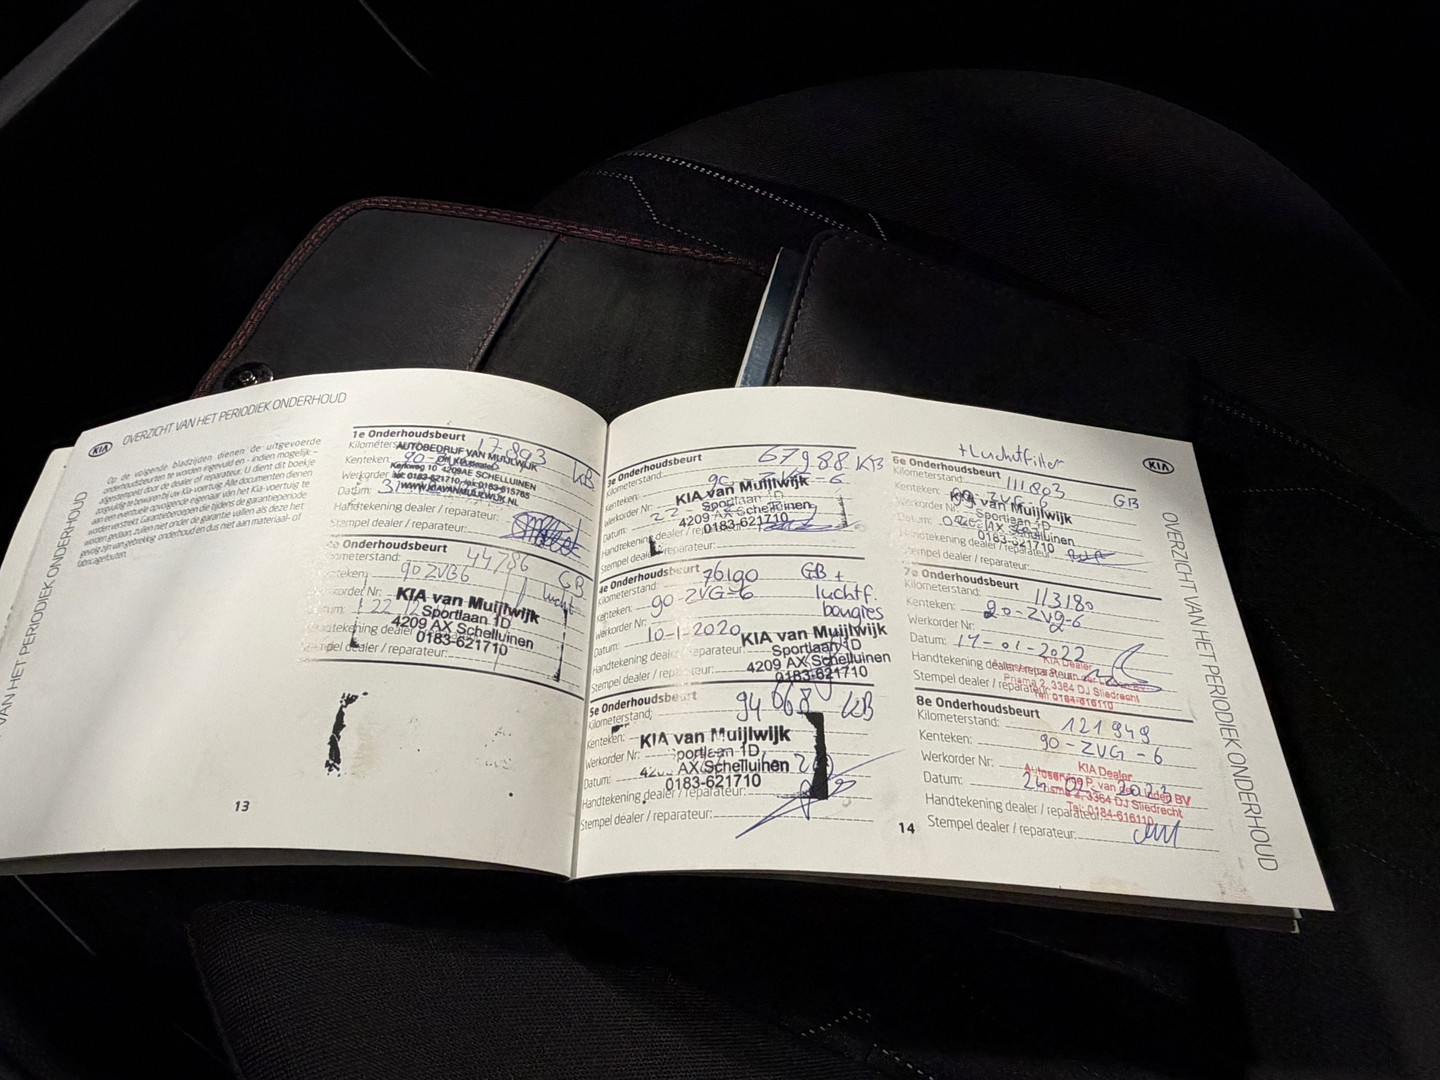 KIA
OVERZICHT VAN HET PERIODIEK ONDERHOUD
VAN HET PERIODIEK ONDERHOUD
Op de volgende bladzijden dienen de uitgevoerde
onderhoudsbeurten te worden ingevuld en - indien mogelijk -
afgestempeld door de dealer of reparateur. U dient dit boekje
zorgvuldig te bewaren bij uw Kia-voertuig. Alle documenten dienen
aan een eventuele opvolgende eigenaar van het Kia-voertuig te
worden verstrekt. Garantieberoepen die tijdens de garantieperiode
worden gedaan, zullen niet onder de garantie vallen als deze het
gevolg zijn van gebrekkig onderhoud en dus niet aan materiaal- of
fabricagefouten.
1e Onderhoudsbeurt
17.893
KB
AUTOBEDRIJF VAN MUIJLWIJK
Kenteken:
Kerkweg 10 4209AE SCHELLUINEN
Werkorder
tel: 0183-621710
WWW.KIAVANMUIJLWIJK.NL
Datum:
Handtekening dealer / reparateur:
Stempel dealer / reparateur:
Onderhoudsbeurt
44786
90ZVG6
GB
lucht
22
KIA van Muijlwijk
Sportlaan 1D
4209 AX Schelluinen
0183-621710
dealer / reparateur:
13
Onderhoudsbeurt
67988 KB
Kilometerstand:
Kenteken:
KIA van Muijlwijk
Werkorder Nr:
Sportlaan 1D
4209 AX Schelluinen
Datum:
0183-621710
Handtekening dealer / reparateur:
Stempel dealer / reparateur:
4e Onderhoudsbeurt
76190
GB +
Kilometerstand:
luchtf.
Kenteken:
90-ZVG-6
bougies
Werkorder Nr:
10-1-2020
KIA van Muijlwijk
Datum:
Sportlaan 1D
Handtekening
4209 AX Schelluinen
Stempel dealer / reparateur:
0183-621710
5e Onderhoudsbeurt
94668
KB
Kilometerstand:
Kenteken:
KIA van Muijlwijk
Werkorder Nr:
Sportlaan 1D
Datum:
AX Schelluinen
0183-621710
Handtekening dealer / reparateur:
Stempel dealer / reparateur:
14
+Luchtfilter
KIA
6e Onderhoudsbeurt
Kilometerstand:
111803
GB
Kenteken:
KIA van Muijlwijk
Sportlaan 1D
AX Schelluinen
0183-621710
Handtekening dealer / reparateur
Stempel dealer / reparateur:
7e Onderhoudsbeurt
Kilometerstand:
113180
Kenteken:
90-ZVG-6
Werkorder Nr:
Datum:
14-01-2022
KIA Dealer
Handtekening dealer
Prisma 2, 3364 DJ Sliedrecht
Stempel dealer / reparateur
Tel: 0184-616110
8e Onderhoudsbeurt
Kilometerstand:
121949
Kenteken:
90-ZVG-6
Werkorder Nr:
KIA Dealer
Autoservice P. van der Linden BV
Datum:
2023
Prisma 2, 3364 DJ Sliedrecht
Handtekening dealer / reparateur:
Tel: 0184-616110
Stempel dealer / reparateur:
OVERZICHT VAN HET PERIODIEK ONDERHOUD